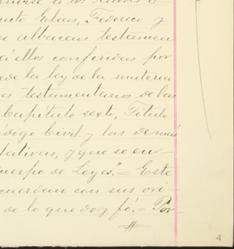 los
Elias, Federico y
albaceas testamen
ellos conferidas por
de la ley de la materia
testamentarios de las
Capítulo sexto, Título
digo Civil y las demás
tativas, y que se en
uerpo de Leyes." — Este
cuerdan con sus ori
de lo que doy fé. — Por